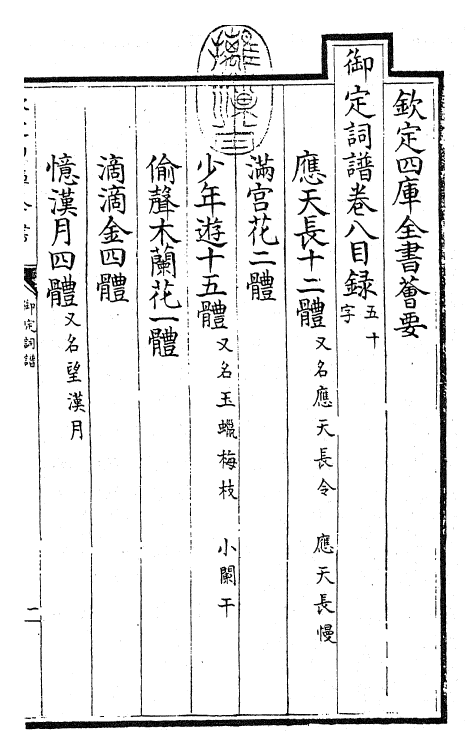 欽定四庫全書薈要
御定詞譜卷八目録五十字
應天長十二體又名應天長令 應天長慢
滿宫花二體
少年遊十五體又名玉蠟梅枝 小闌干
偷聲木蘭花一體
滴滴金四體
憶漢月四體又名望漢月
御定詞譜